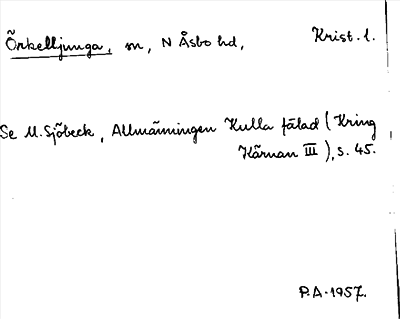 Örkelljunga, sn, N Åsbo hd, Krist. l.
Se M. Sjöbeck, Allmänningen Kulla fälad (Kring
Kärnan III), s. 45.
P.A. 1957.